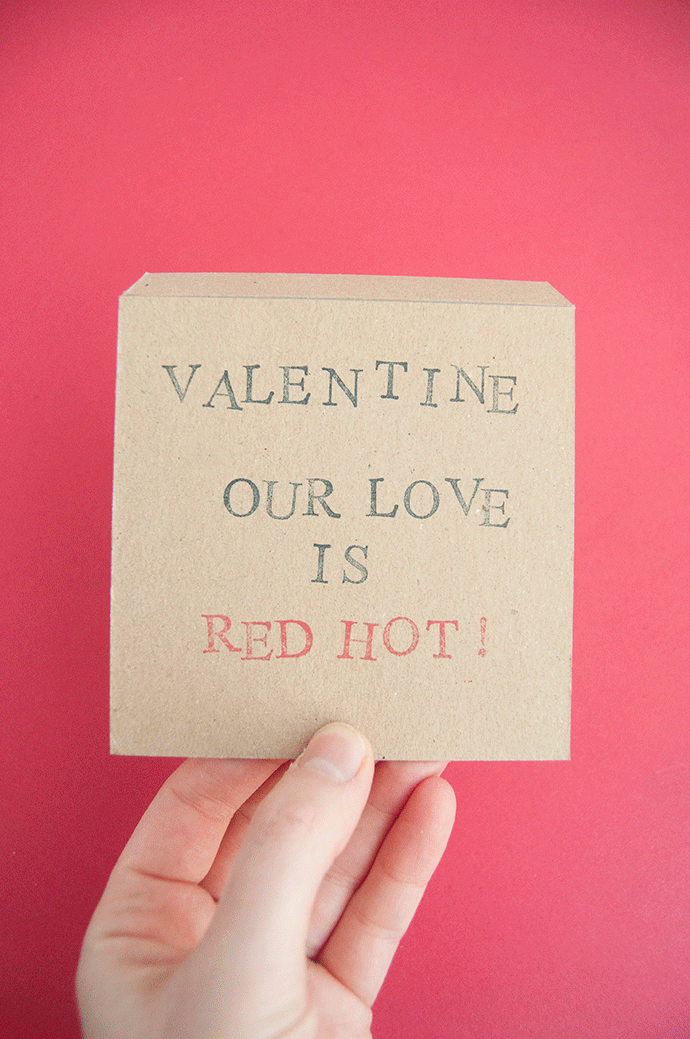 VALENTINE
OUR LOVE
IS
RED HOT!